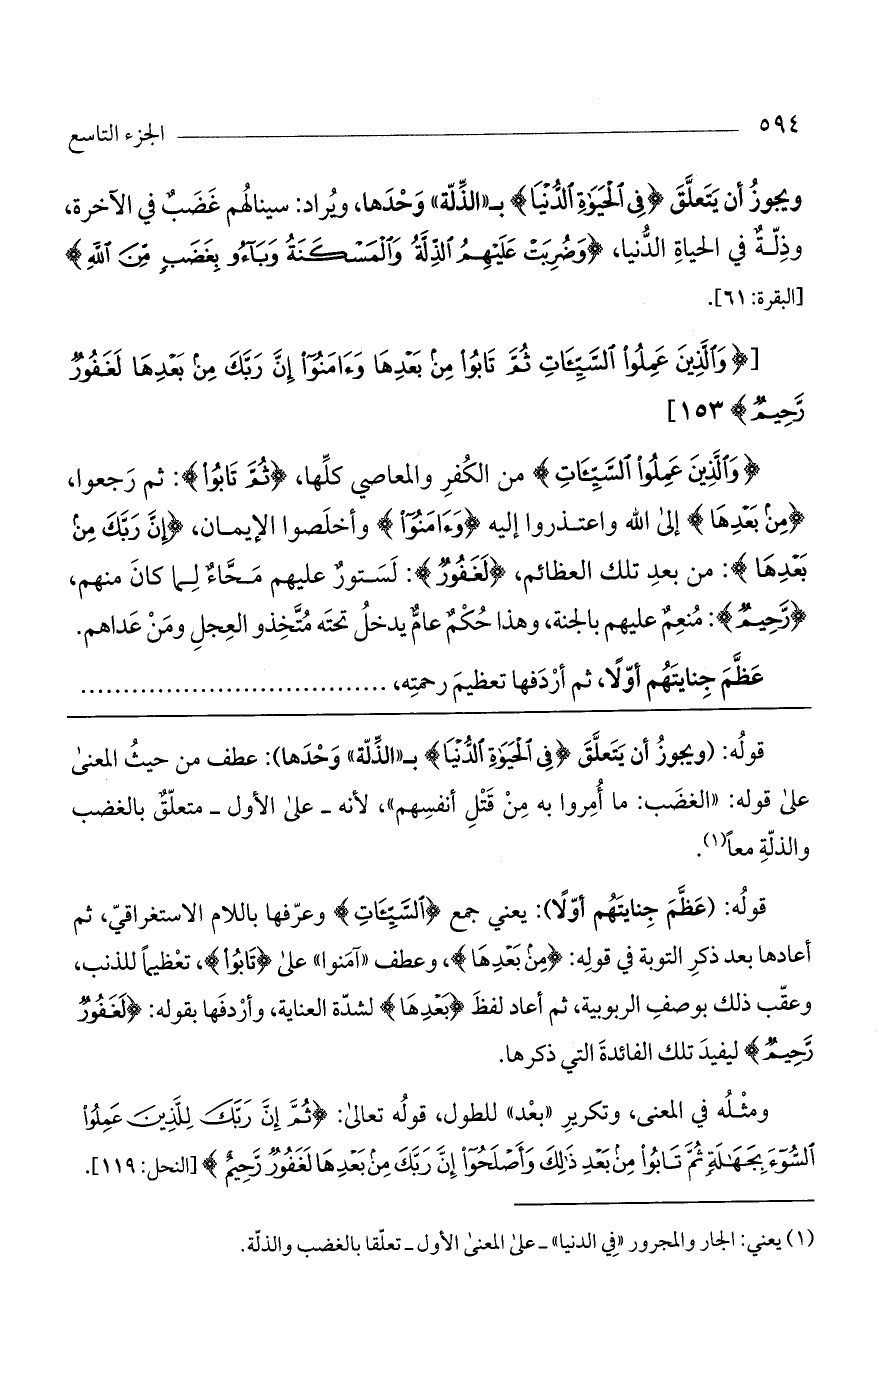 ٥٩٤ الجزء التاسع
ويجوزُ أن يَتَعلَّقَ ﴿فِي ٱلْحَيَوٰةِ ٱلدُّنْيَا﴾ بـ«الذِّلّة» وَحْدَها، ويُراد: سينالهُم غَضَبٌ في الآخرة،
وذِلّةٌ في الحياةِ الدُّنيا، ﴿وَضُرِبَتْ عَلَيْهِمُ ٱلذِّلَّةُ وَٱلْمَسْكَنَةُ وَبَآءُو بِغَضَبٍ مِّنَ ٱللَّهِ﴾
[البقرة: ٦١].
[﴿وَٱلَّذِينَ عَمِلُوا۟ ٱلسَّيِّـَٔاتِ ثُمَّ تَابُوا۟ مِنۢ بَعْدِهَا وَءَامَنُوٓا۟ إِنَّ رَبَّكَ مِنۢ بَعْدِهَا لَغَفُورٌ
رَّحِيمٌ﴾ ١٥٣]
﴿وَٱلَّذِينَ عَمِلُوا۟ ٱلسَّيِّـَٔاتِ﴾ من الكُفرِ والمعاصي كلِّها، ﴿ثُمَّ تَابُوا۟﴾: ثم رَجعوا،
﴿مِنۢ بَعْدِهَا﴾ إلىٰ الله واعتـذروا إليه ﴿وَءَامَنُوٓا۟﴾ وأخلَصوا الإيمـان، ﴿إِنَّ رَبَّكَ مِنۢ
بَعْدِهَا﴾: من بعدِ تلك العظائم، ﴿لَغَفُورٌ﴾: لَسَـتورٌ عليهم مَـحَّاءٌ لِـما كانَ منهم،
﴿رَّحِيمٌ﴾: مُنعِمٌ عليهم بالجنة، وهذا حُكْمٌ عامٌّ يدخلُ تحتَه مُتَّخِذو العِجلِ ومَنْ عَداهم.
عَظَّمَ جِنايتَهُم أوّلًا، ثم أرْدَفها تعظيمَ رحمتِه، ....................................
قولُه: (ويجوزُ أن يَتَعلَّقَ ﴿فِي ٱلْحَيَوٰةِ ٱلدُّنْيَا﴾ بـ«الذِّلّة» وَحْدَها): عطف من حيثُ المعنىٰ
علىٰ قوله: «الغضَب: ما أُمِروا به مِنْ قَتْلِ أنفسِهم»، لأنه ـ علىٰ الأول ـ متعلّقٌ بالغضب
والذلّةِ معاً(١).
قولُه: (عَظَّمَ جِنايتَهُم أوّلًا): يعني جمع ﴿ٱلسَّيِّـَٔاتِ﴾ وعرّفها باللام الاستغراقيّ، ثم
أعادها بعد ذكرِ التوبة في قولِه: ﴿مِنۢ بَعْدِهَا﴾، وعطف «آمَنوا» علىٰ ﴿تَابُوا۟﴾، تعْظيماً للذنب،
وعقّب ذلك بوصفِ الربوبية، ثم أعاد لفظَ ﴿بَعْدِهَا﴾ لشدّة العناية، وأرْدفَها بقوله: ﴿لَغَفُورٌ
رَّحِيمٌ﴾ ليفيدَ تلك الفائدةَ التي ذكرها.
ومثْـلُه في المعنى، وتكريرِ «بعْد» للطول، قولُه تعالىٰ: ﴿ثُمَّ إِنَّ رَبَّكَ لِلَّذِينَ عَمِلُوا۟
ٱلسُّوٓءَ بِجَهَـٰلَةٍ ثُمَّ تَـابُوا۟ مِنۢ بَعْدِ ذَٰلِكَ وَأَصْلَحُوٓا۟ إِنَّ رَبَّكَ مِنۢ بَعْدِهَا لَغَفُورٌ رَّحِيمٌ﴾ [النحل: ١١٩].
(١) يعني: الجار والمجرور «فِي الدنيا» ـ علىٰ المعنىٰ الأول ـ تعلّقا بالغضب والذلّة.